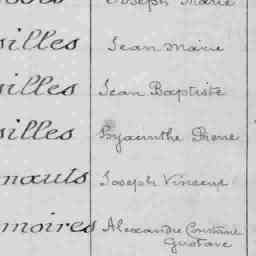 Joseph Marie
silles Jean Marie
silles Jean Baptiste
silles Hyacinthe Pierre
nauts Joseph Vincent
moires Alexandre Constant
Gustave